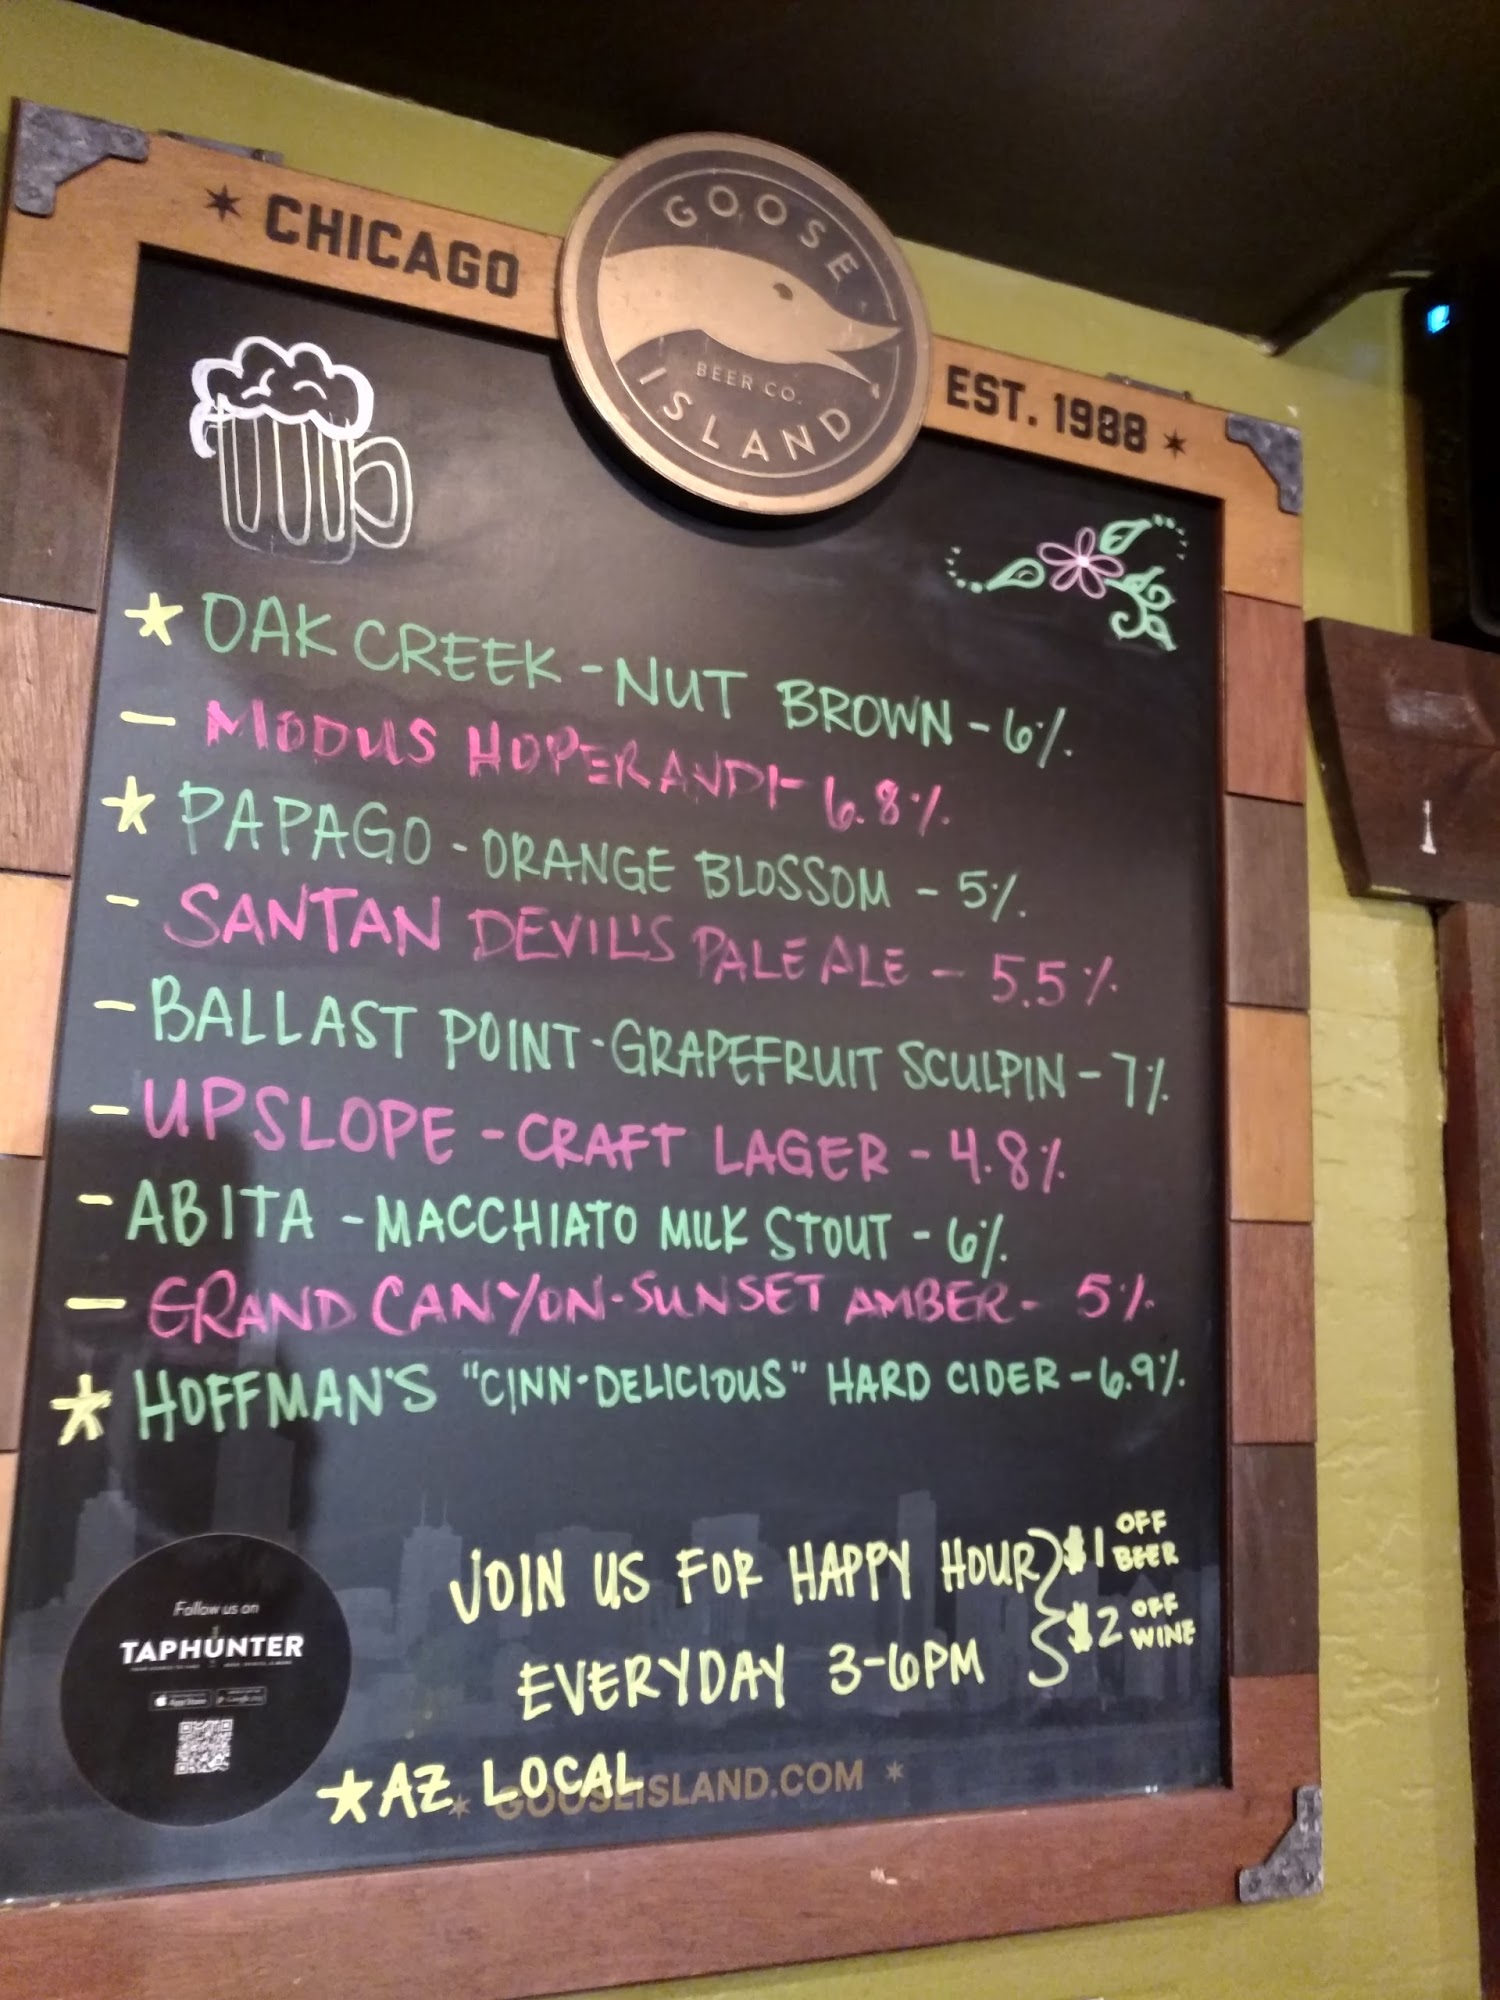 ★ CHICAGO
GOOSE
ISLAND
BEER CO.
EST. 1988 ★
★ OAK CREEK - NUT BROWN - 6%
- MODUS HOPERANDI - 6.8%
★ PAPAGO - ORANGE BLOSSOM - 5%
- SANTAN DEVIL'S PALE ALE - 5.5%
- BALLAST POINT - GRAPEFRUIT SCULPIN - 7%
- UPSLOPE - CRAFT LAGER - 4.8%
- ABITA - MACCHIATO MILK STOUT - 6%
- GRAND CANYON - SUNSET AMBER - 5%
★ HOFFMAN'S "CINN-DELICIOUS" HARD CIDER - 6.9%
JOIN US FOR HAPPY HOUR
EVERYDAY 3-6PM
$1 OFF BEER
$2 OFF WINE
Follow us on
TAPHUNTER
App Store
Google play
★ AZ LOCAL
★ GOOSEISLAND.COM ★